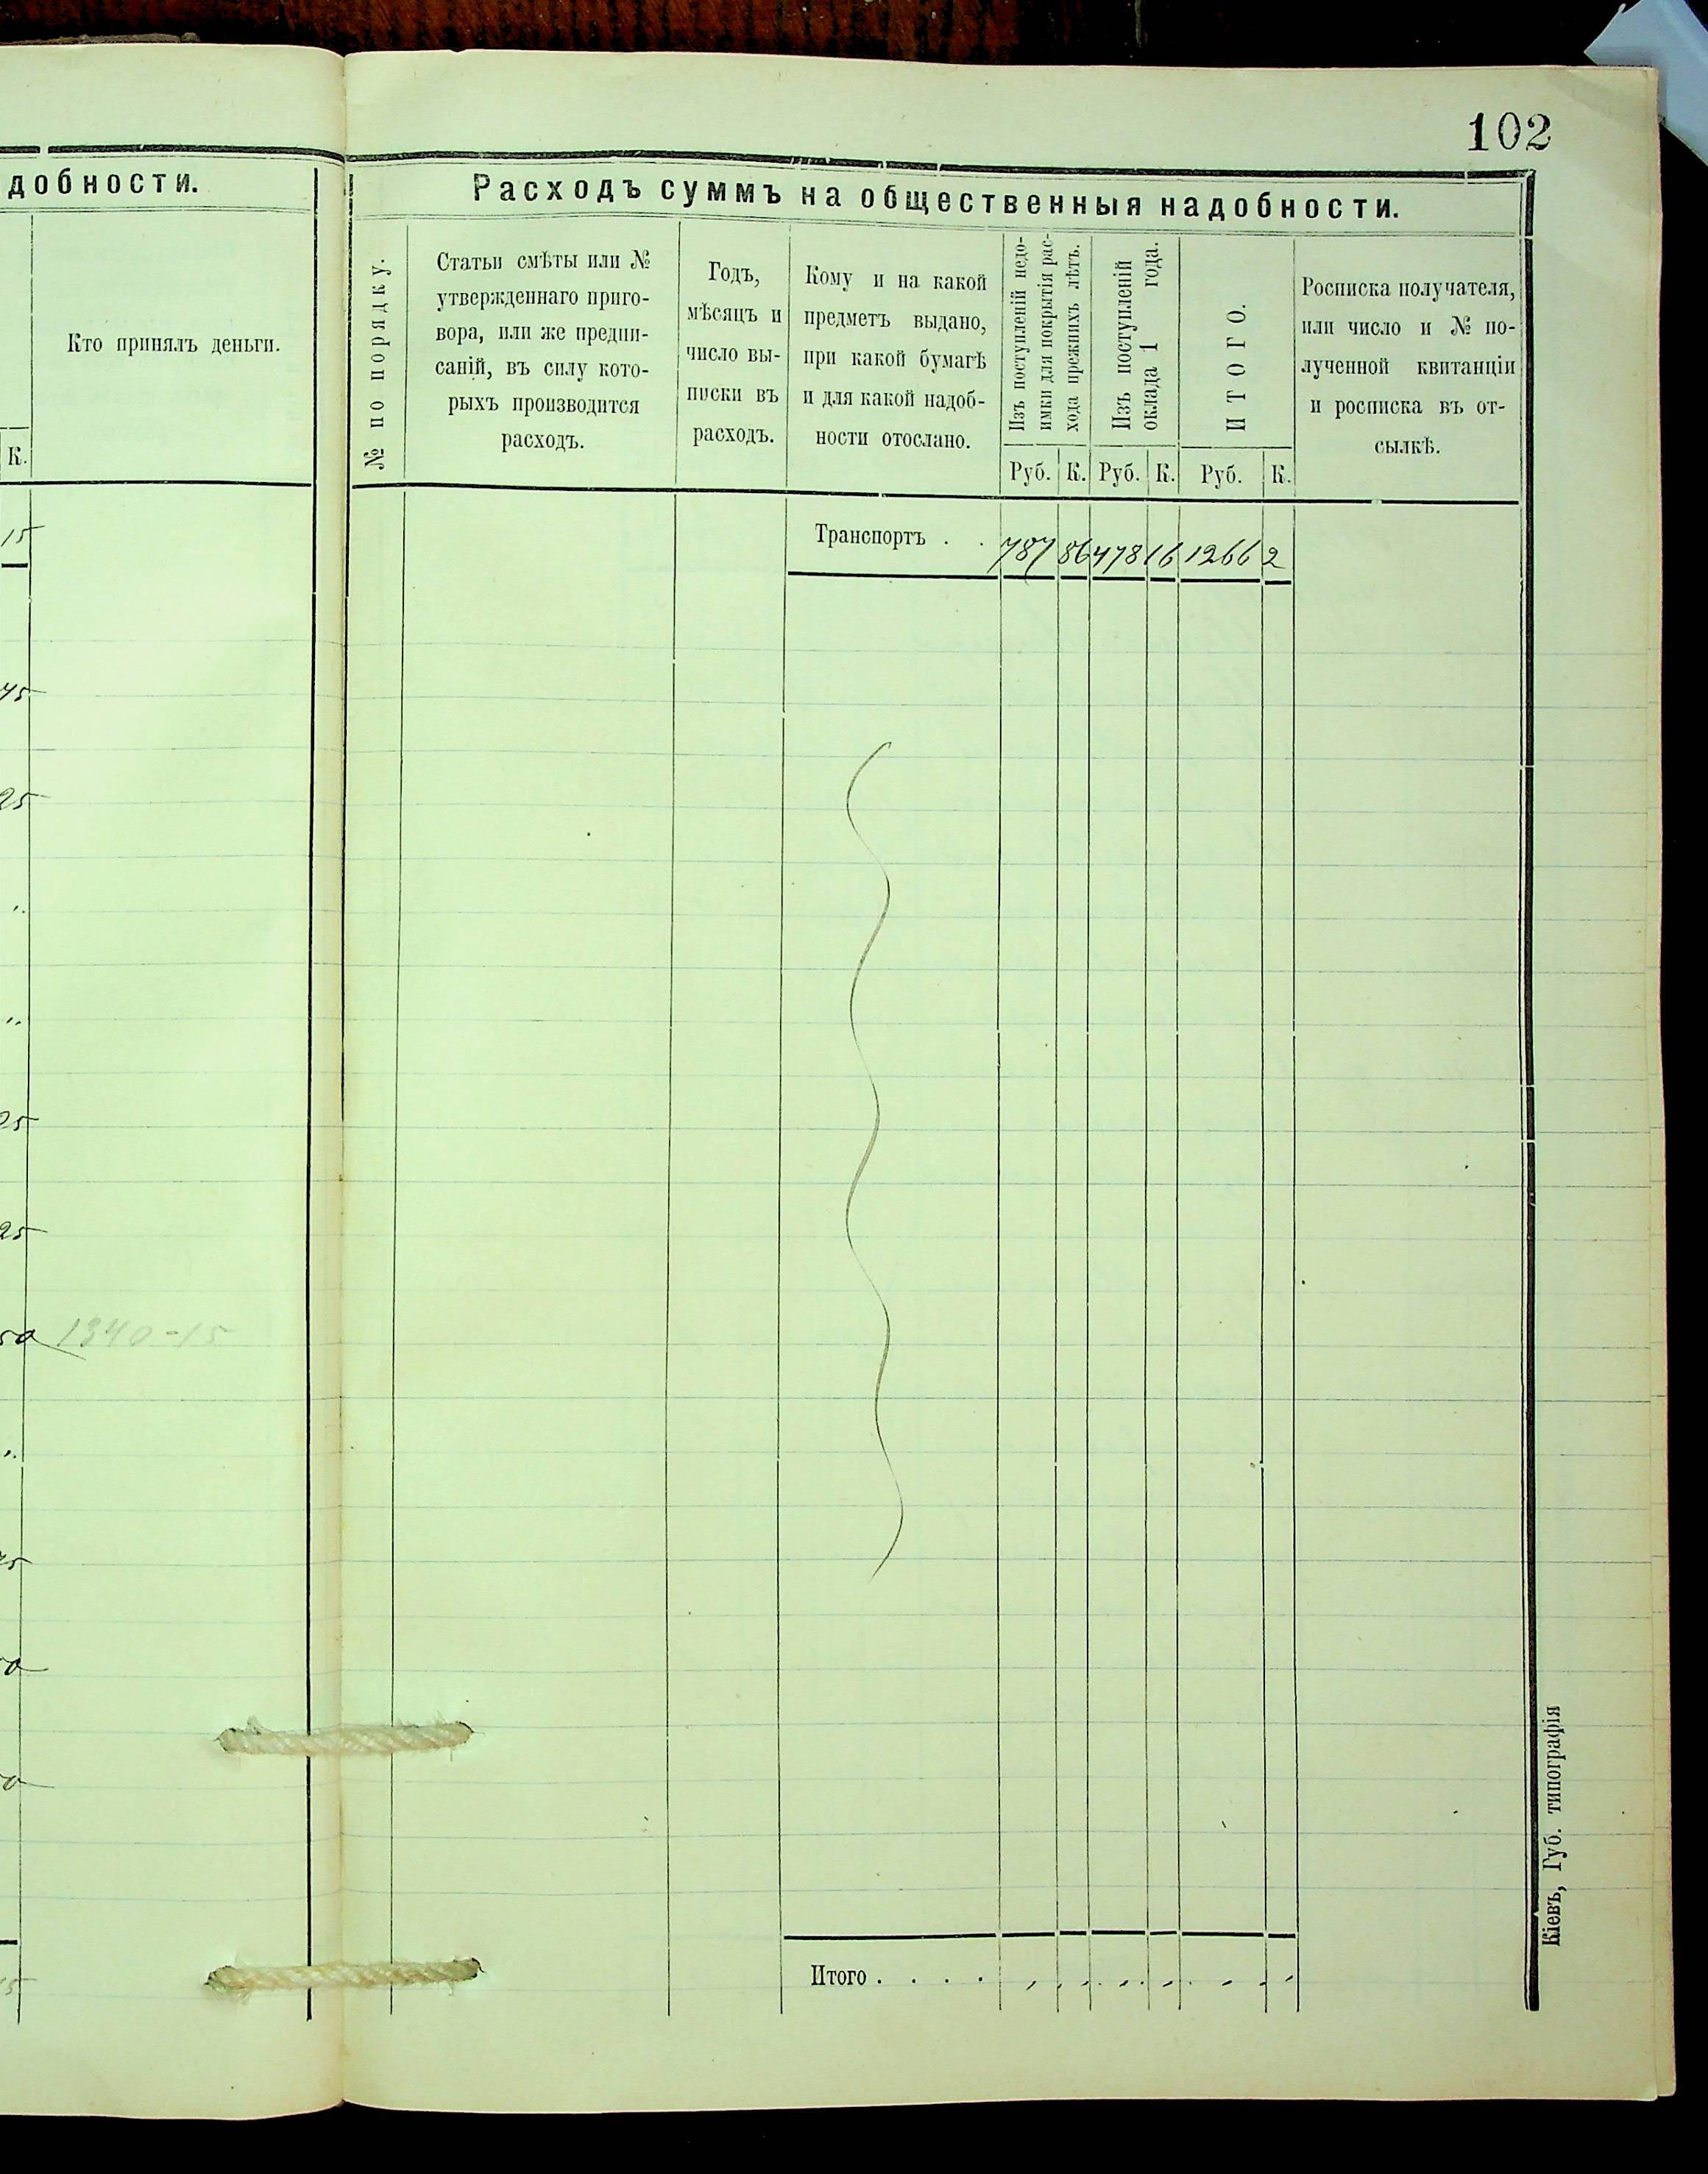 102
добности.
Кто принялъ деньги.
К.
15
45
25
25
25
50 1340-15
Расходъ суммъ на общественныя надобности.
№ по порядку.
Статьи смѣты или №
утвержденнаго приго-
вора, или же предпи-
саній, въ силу кото-
рыхъ производится
расходъ.
Годъ,
мѣсяцъ и
число вы-
писки въ
расходъ.
Кому и на какой
предметъ выдано,
при какой бумагѣ
и для какой надоб-
ности отослано.
Изъ поступленій недо-
имки для покрытія рас-
хода прежнихъ лѣтъ.
Изъ поступленій
оклада 1 года.
ИТОГО.
Росписка получателя,
или число и № по-
лученной квитанціи
и росписка въ от-
сылкѣ.
Руб. К. Руб. К. Руб. К.
Транспортъ . . 787 86 478 16 1266 2
Итого . . . .
Кіевъ, Губ. типографія